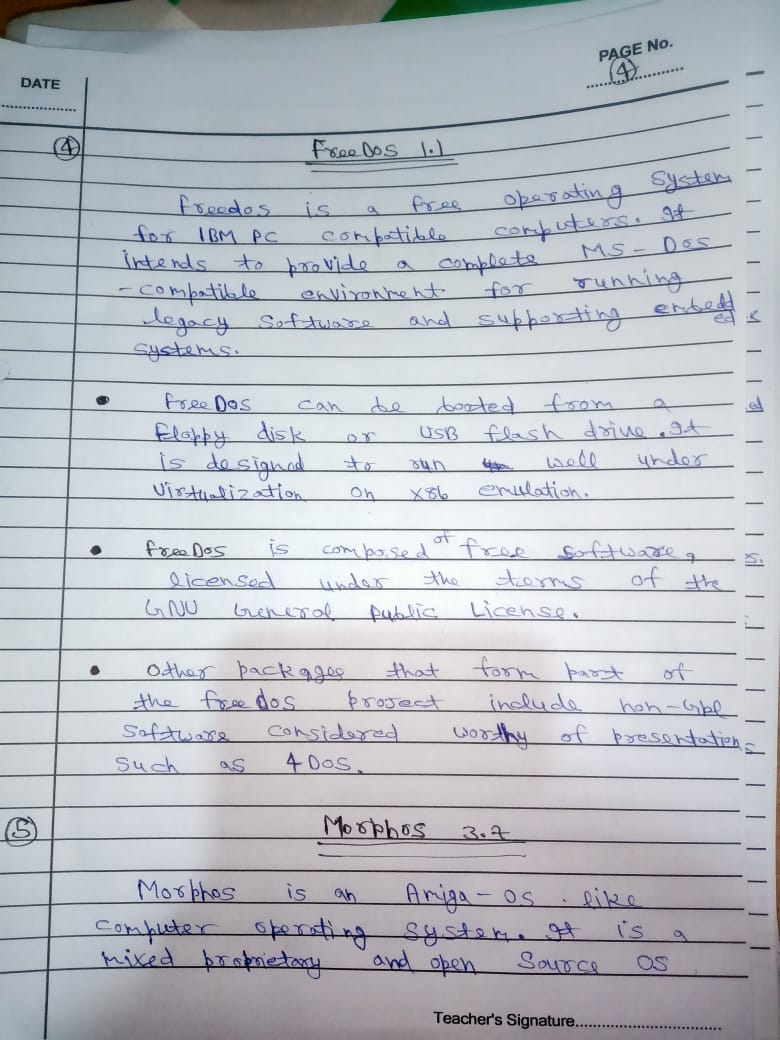 PAGE No.
4
DATE
4 FreeDos 1.1
Freedos is a free operating system
for IBM PC compatible computers. It
intends to provide a complete MS-Dos
-compatible environment for running
legacy Software and supporting embedd
ed
systems.
• FreeDos can be booted from a
floppy disk or USB flash drive. It
is designed to run well under
Virtualization on x86 emulation.
• freeDos is composed of free software,
licensed under the terms of the
GNU General Public License.
• Other packages that form part of
the freedos project include non-Gpl
Software considered worthy of presentation
Such as 4DOS.
5 Morphos 3.7
Morphos is an Amiga-os. like
computer operating system. It is a
mixed proprietary and open Source OS
Teacher's Signature